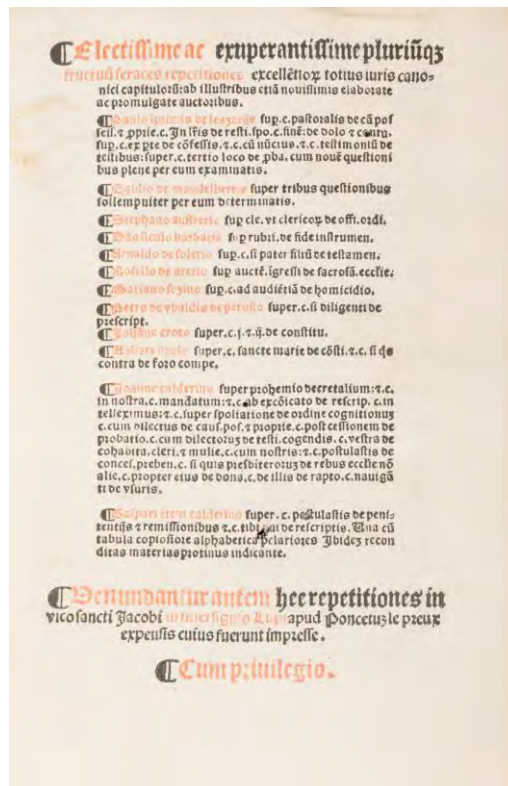 ¶Electissime ac exuperantissime pluriũqʒ
fructuũ feraces repetitiones excellẽtioꝝ totius iuris cano-
nici capitulorũ: ab illustribus etiã nouissimis elaborate
ac promulgate auctoribus.
¶Paulo ipsimis de leazariis suꝑ.c.pastoralis de cã pos
seis.⁊ ꝓprie.c.In lr̃is de resti.spo.c.finẽ: de dolo ⁊ contu.
suꝑ.c.ex pte de cõfessis.⁊.c.cũ nũcius.⁊.c.testimoniũ de
testibus: super.c.tertio loco de ꝓba. cum nouẽ questioni
bus plene per eum examinatis.
¶Egidio de mandelberris super tribus questionibus
sollempniter per eum determinatis.
¶Stephano aufrerii suꝑ cle. vt clericoꝝ de offi.ordi.
¶Dño siculo barbatia suꝑ rubri.de fide instrumen.
¶Arnaldo de solerio suꝑ.c.si pater filiũ de testamen.
¶Rosello de aretio suꝑ auctẽ.ĩgressi de sacrosã.ecclie.
¶Mariano sozino suꝑ.c.ad audiẽtiã de homicidio.
¶Petro de vbaldis de perusio super.c.si diligenti de
prescript.
¶Johane croto super.c.j.⁊.ij.de constitu.
¶Abbate siculo super.c. sancte marie de cõsti.⁊.c. si qs
contra de foro compe.
¶Joanne calderino super prohemio decretalium:⁊.c.
in nostra.c.mandatum:⁊.c.ab excõicato de rescrip. c.in
tellexímus:⁊.c.super spoliatione de ordine cognitionuʒ
c.cum dilectus de cauſ.pos.⁊ proprie.c.post cessionem de
probatio.c.cum dilectoruʒ de testi.cogendis. c.vestra de
cohabita.cleri.⁊ mulie.c.cum nostris:⁊.c.postulastis de
conces.preben.c. si quis presbiteroruʒ de rebus ecclie nõ
alie.c.propter eius de dona.c.de illis de rapto.c.nauigã
ti de vsuris.
¶Gaspari item calderino super.c.postulastis de peni-
tentijs ⁊ remissionibus ⁊.c.tibi qui de rescriptis. Una cũ
tabula copiosiore alphabetica pelariores Ibideʒ recon
ditas materias protinus indicante.
¶Venundantur autem hee repetitiones in
vico sancti Jacobi in intersignio Lupi apud Poncetuʒ le preux
expensis cuius fuerunt impresse.
¶Cum priuilegio.